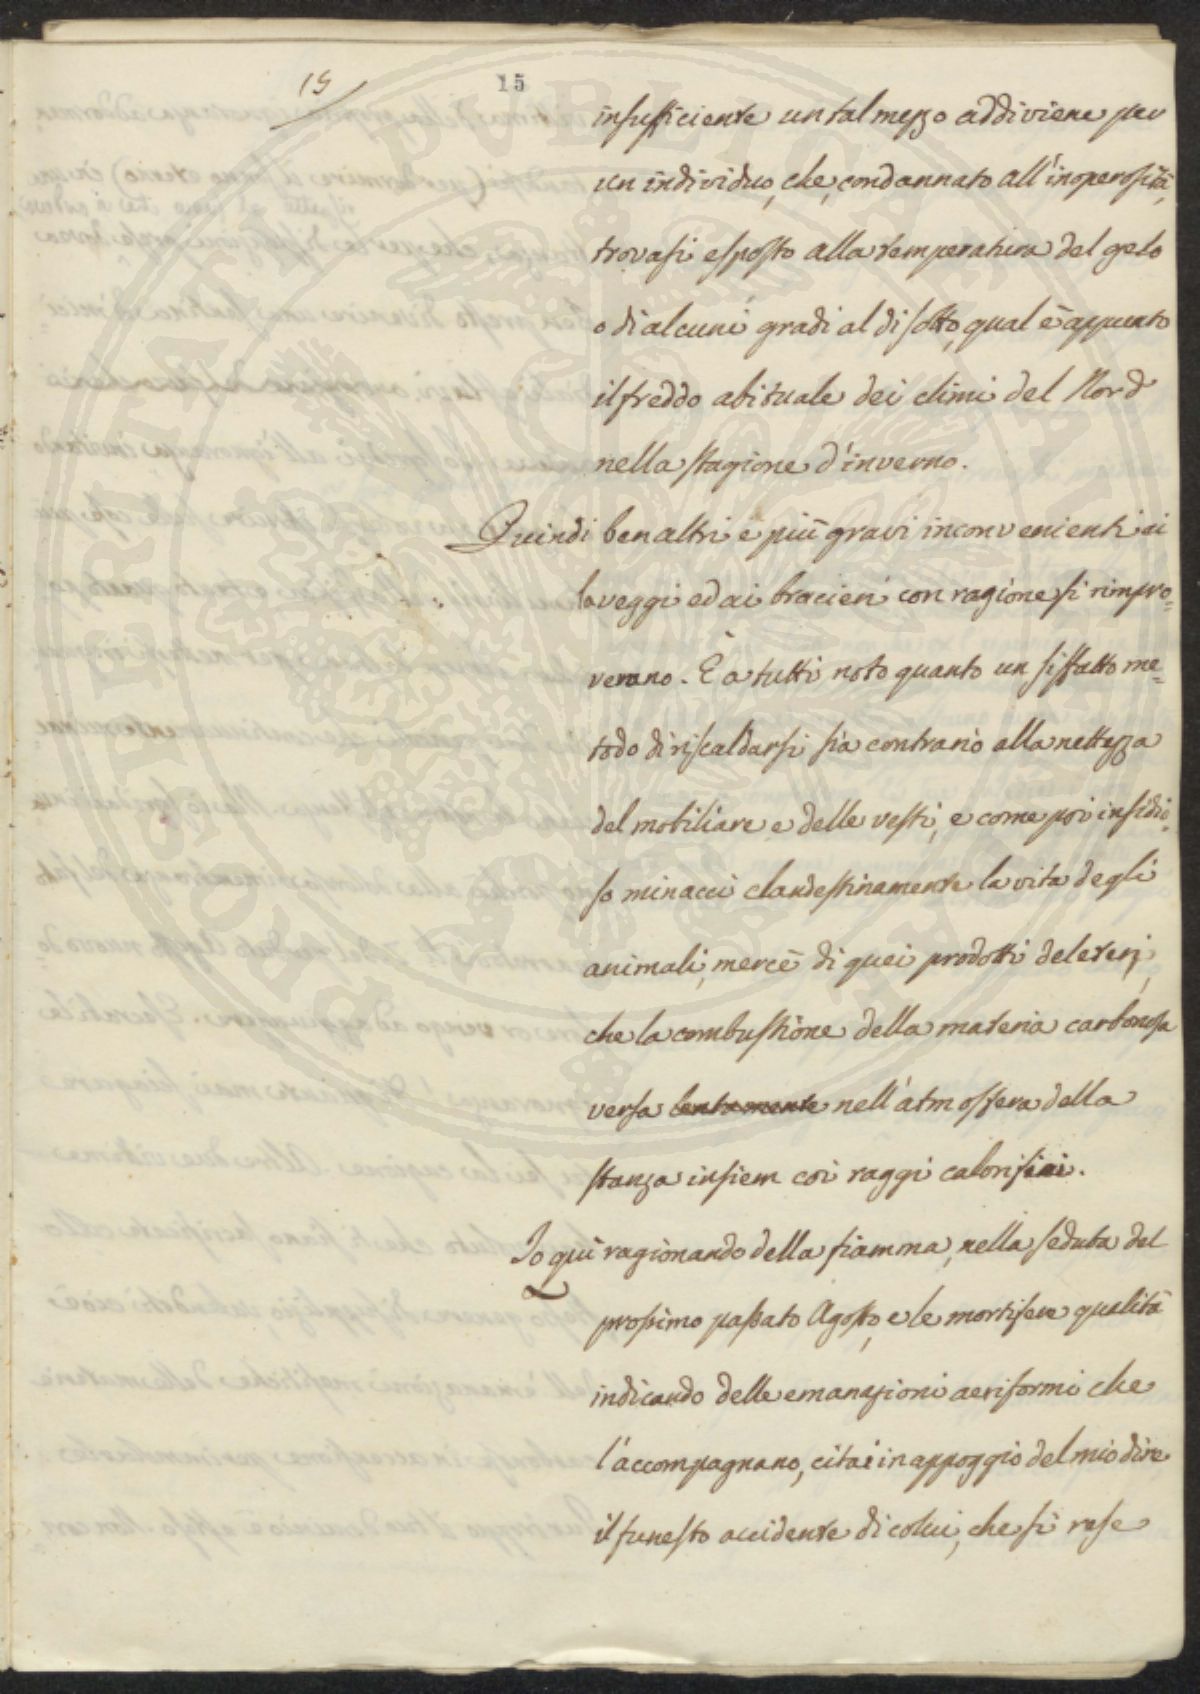 15
15
insufficiente un tal mezzo addiviene per
un individuo, che, condannato all'inoperosità,
trovasi esposto alla temperatura del gelo
o di alcuni gradi al di sotto, qual è appunto
il freddo abituale dei climi del Nord
nella stagione d'inverno.
Quindi ben altri e più gravi inconvenienti ai
laveggi ed ai bracieri con ragione si rimpro=
verano. È a tutti noto quanto un siffatto me=
todo di riscaldarsi sia contrario alla nettezza
del mobiliare e delle vesti, e come poi insidio=
so minacci clandestinamente la vita degli
animali, mercè di quei prodotti deleterj,
che la combustione della materia carbonosa
versa lentamente nell'atmosfera della
stanza insiem coi raggi calorifici.
Io quì ragionando della fiamma, nella seduta del
prossimo passato Agosto, e le mortifere qualità
indicando delle emanazioni aeriformi che
l'accompagnano, citai in appoggio del mio dire
il funesto accidente di colui, che si rese